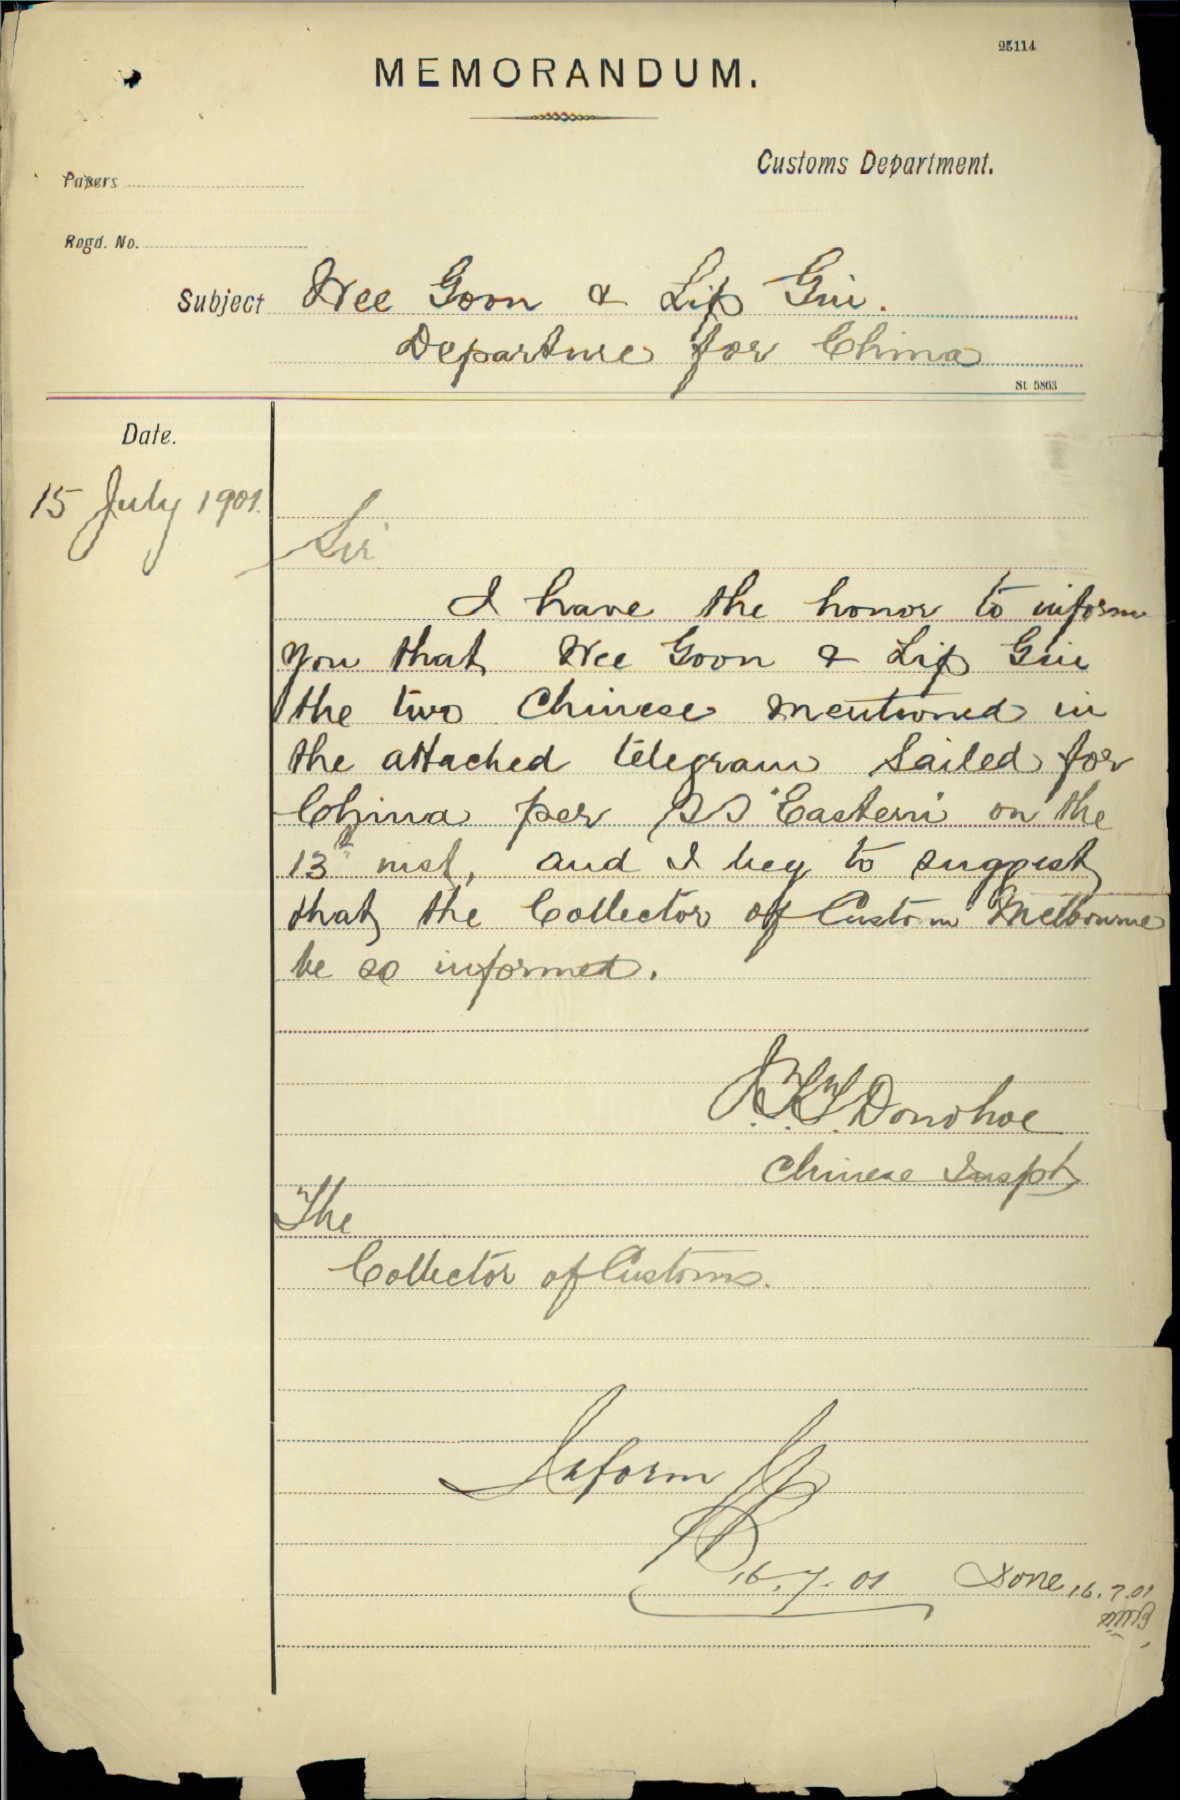 25114
MEMORANDUM.
Customs Department.
Papers
Regd. No.
Subject Wee Goon & Lip Gin.
Departure for China
St. 5863
Date.
15 July 1901.
Sir
I have the honor to inform
you that Wee Goon & Lip Gin
the two Chinese mentioned in
the attached telegram sailed for
China per SS "Eastern" on the
13th inst, and I beg to suggest
that the Collector of Custom Melbourne
be so informed.
Donohoe
Chinese Inspt
The
Collector of Customs.
Inform
16.7.01
Done 16.7.01